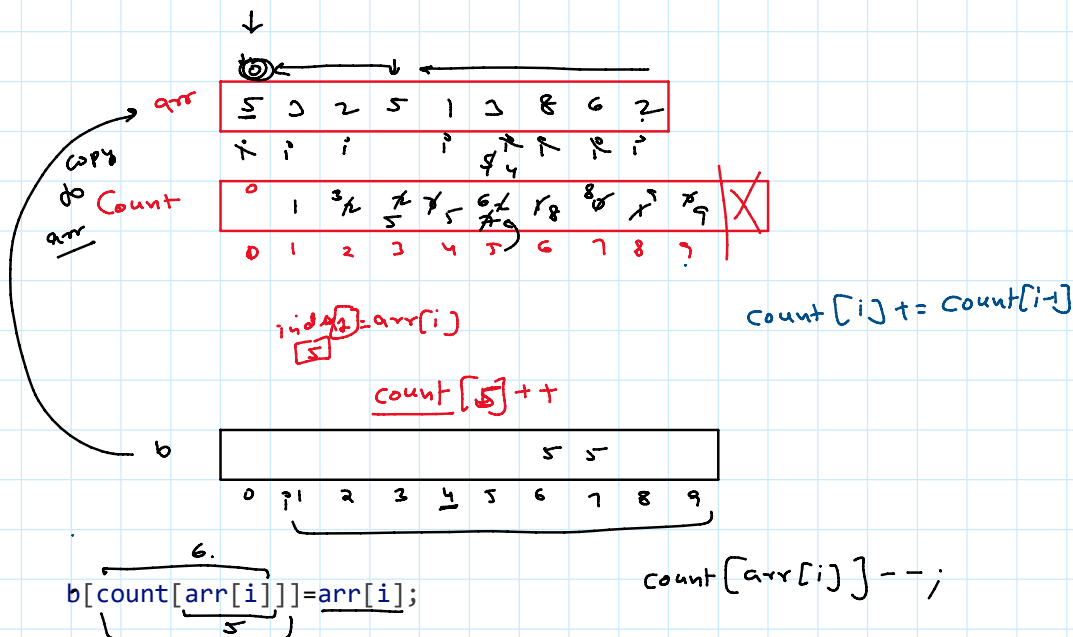 arr 5 3 2 5 1 3 8 6 2
i i i i i i i i
copy
to
arr
Count 0 1 3 5 5 6 8 8 9 9
0 1 2 3 4 5 6 7 8 9
count[i] += count[i-1]
index=arr[i]
5
count[5]++
b 5 5
0 1 2 3 4 5 6 7 8 9
6.
b[count[arr[i]]]=arr[i];
5
count[arr[i]]--;